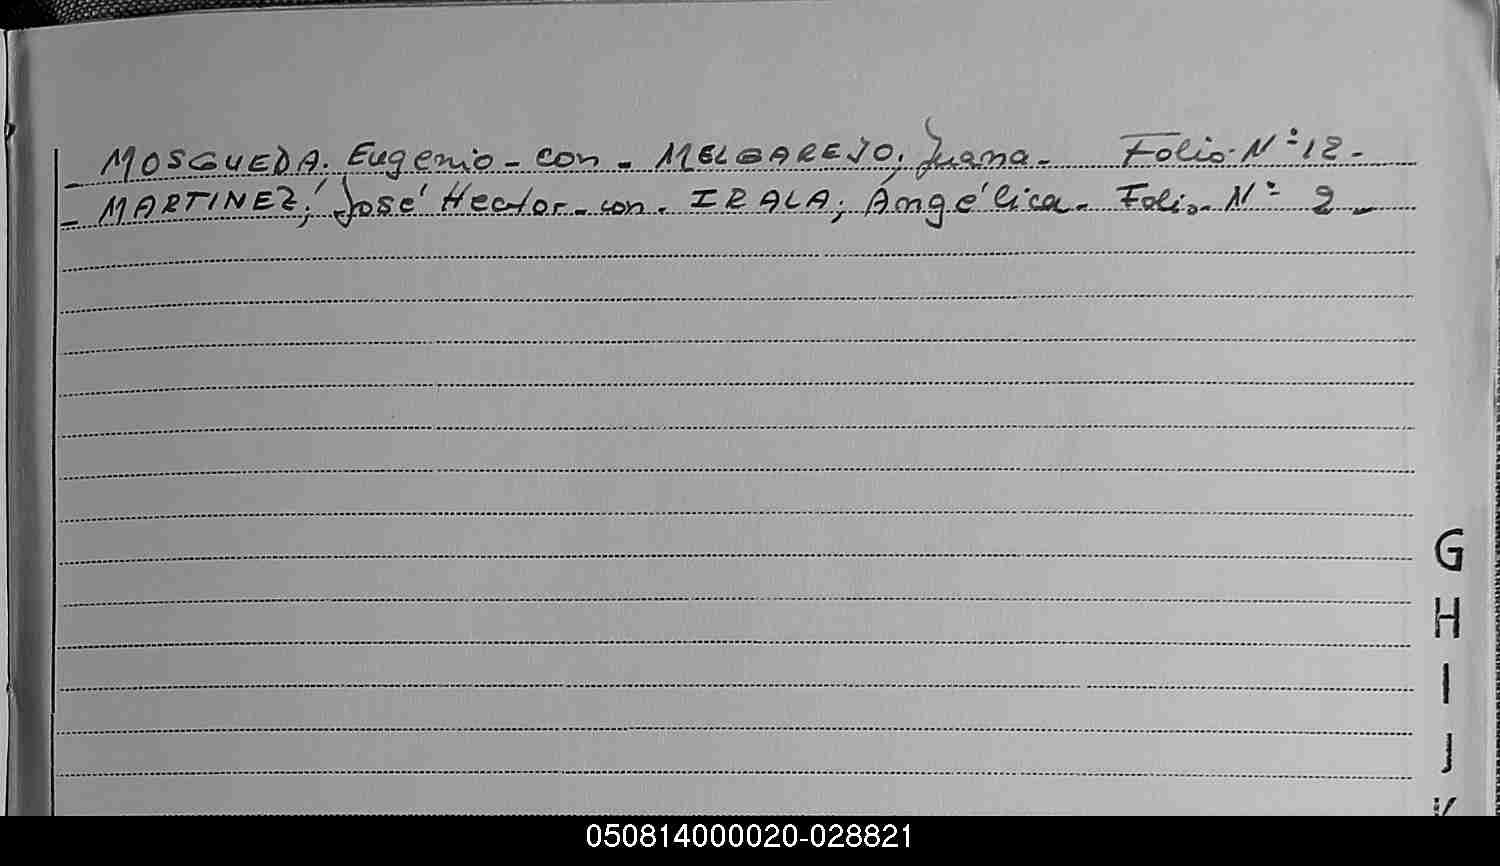 - MOSGUEDA. Eugenio - con - MELGAREJO, Juana - Folio N° 12 -
- MARTINEZ; José Hector - con - IRALA; Angélica - Folio N° 2 -
G
H
I
J
K
050814000020-028821